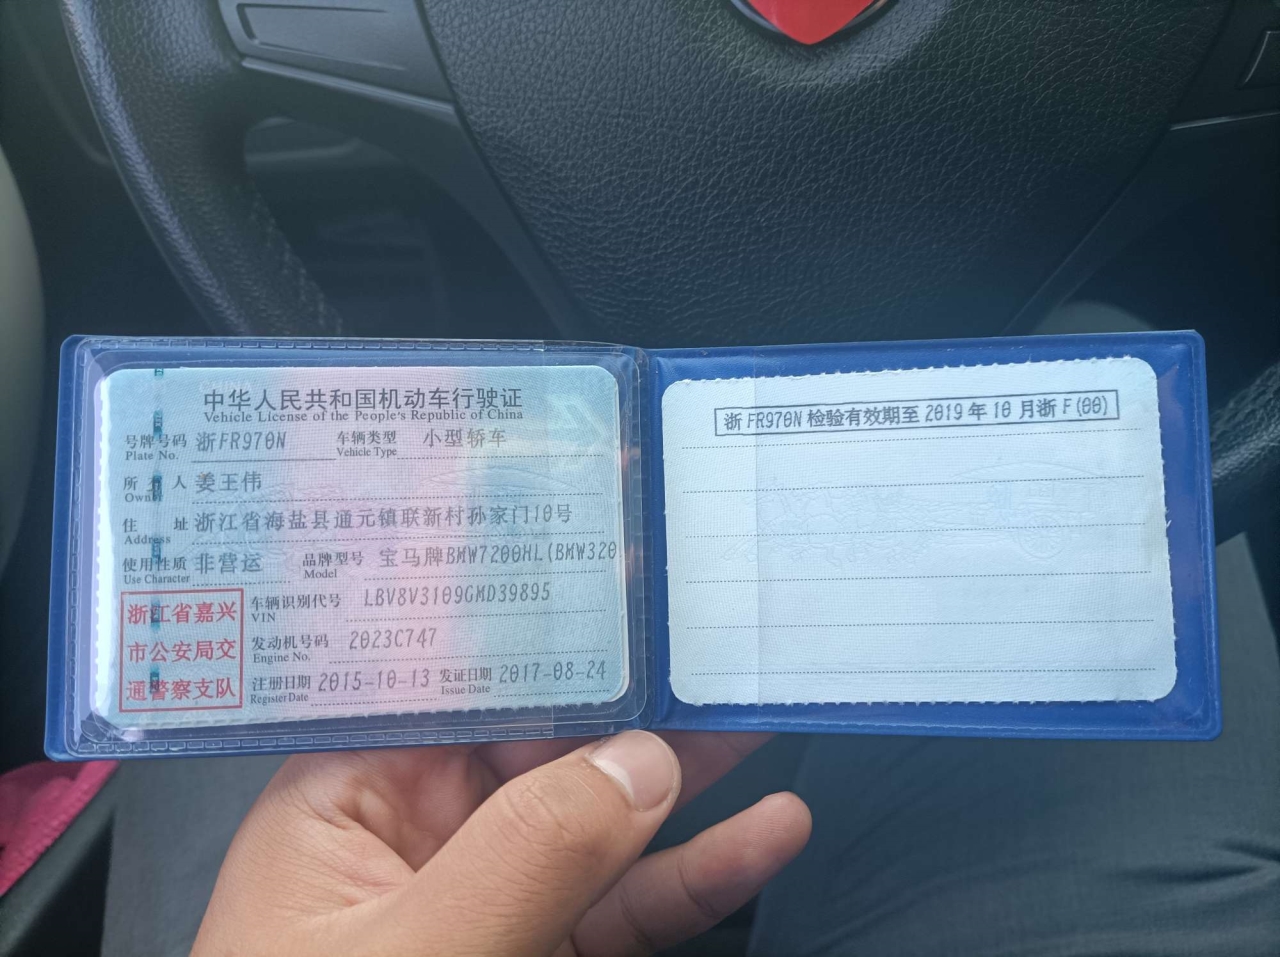 中华人民共和国机动车行驶证
Vehicle License of the People's Republic of China
号牌号码 浙FR970N 车辆类型 小型轿车
Plate No. Vehicle Type
所有人 姜王伟
Owner
住址 浙江省海盐县通元镇联新村孙家门10号
Address
使用性质 非营运 品牌型号 宝马牌BMW7200HL(BMW320
Use Character Model
浙江省嘉兴
市公安局交
通警察支队
车辆识别代号 LBV8V3109GMD39895
VIN
发动机号码 2023C747
Engine No.
注册日期 2015-10-13 发证日期 2017-08-24
Register Date Issue Date
浙FR970N检验有效期至2019年10月浙F(00)